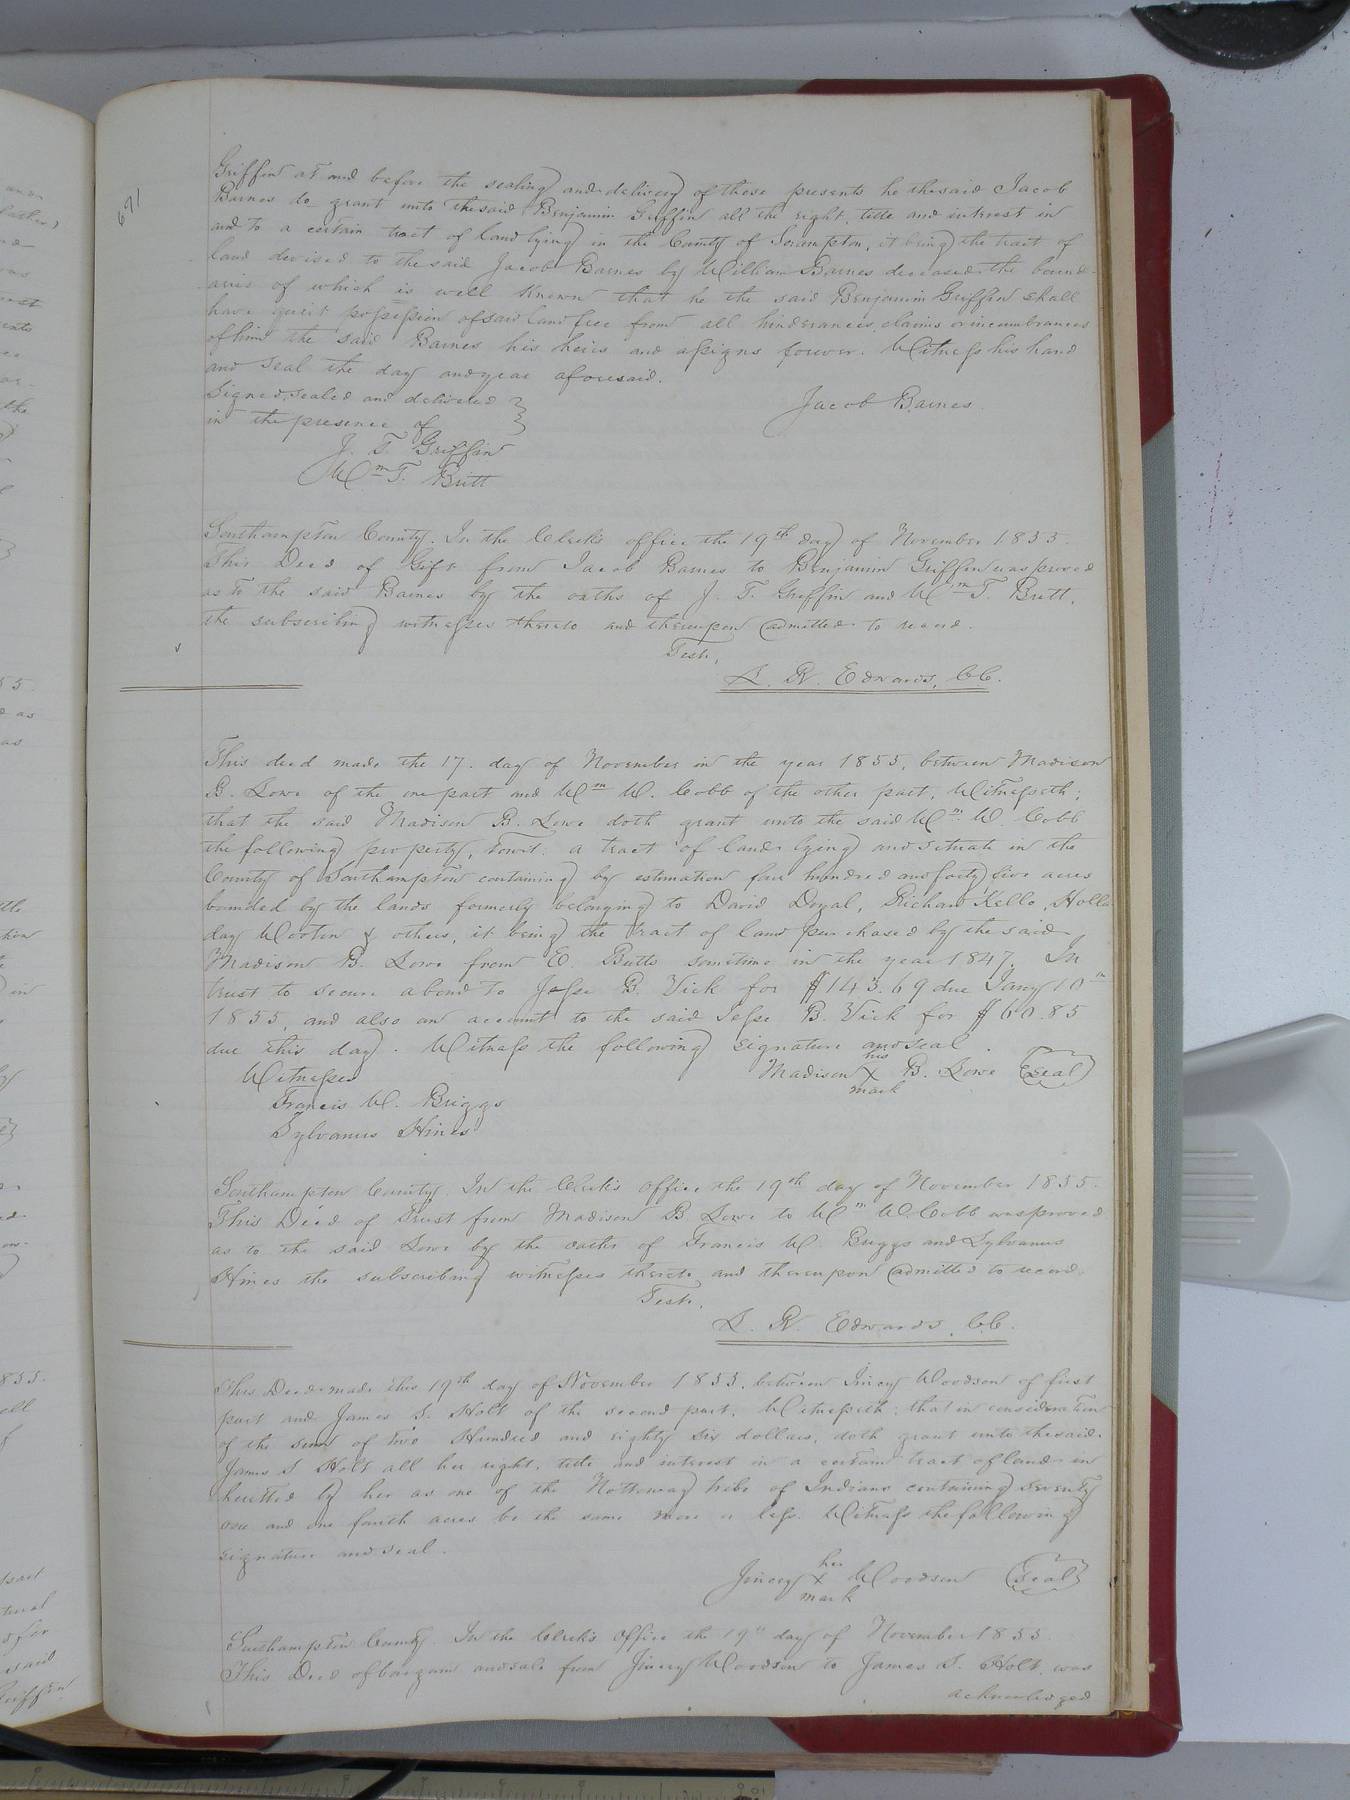 691
Griffin at and before the sealing and delivery of these presents he the said Jacob
Barnes do grant unto the said Benjamin Griffin all the right, title and interest in
and to a certain tract of land lying in the County of Soampton, it being the tract of
land devised to the said Jacob Barnes by William Barnes deceased the bound-
aris of which is well known that he the said Benjamin Griffin shall
have quiet possession of said land free from all hinderances, claims or incumbrances
of him the said Barnes his heirs and assigns forever. Witness his hand
and seal the day and year aforesaid.
Signed, sealed and delivered
in the presence of
Jacob Barnes
J. T. Griffin
Wm T. Britt
Southampton County. In the Clerk's office the 19th day of November 1855.
This Deed of Gift from Jacob Barnes to Benjamin Griffin was proved
as to the said Barnes by the oaths of J. T. Griffin and Wm T. Britt,
the subscribing witnesses thereto and thereupon admitted to record.
Test,
L. R. Edwards, CC.
This deed made the 17. day of November in the year 1855, between Madison
B. Lowe of the one part and Wm W. Cobb of the other part, Witnesseth;
that the said Madison B. Lowe doth grant unto the said Wm W. Cobb
the following property, towit: a tract of land lying and situate in the
County of Southampton containing by estimation four hundred and forty five acres
bounded by the lands formerly belonging to David Doyal, Richard Kello, Holla
day Wooten & others, it being the tract of land purchased by the said
Madison B. Lowe from E. Butts sometime in the year 1847. In
trust to secure a bond to Jesse B. Vick for $143.69 due Jany 10th
1855, and also an account to the said Jesse B. Vick for $60.85
due this day. Witness the following signature and seal
Witnesses
his
Madison X B. Lowe (Seal)
mark
Francis W. Briggs
Sylvanus Hines
Southampton County. In the Clerk's Office the 19th day of November 1855.
This Deed of Trust from Madison B. Lowe to Wm W. Cobb was proved
as to the said Lowe by the oaths of Francis W. Briggs and Sylvanus
Hines the subscribing witnesses thereto and thereupon admitted to record.
Test,
L. R. Edwards, CC.
This Deed made this 19th day of November 1855, between Jincey Woodson of first
part and James S. Holt of the second part, Witnesseth: that in consideration
of the sum of two Hundred and eighty six dollars, doth grant unto the said
James S Holt all her right, title and interest in a certain tract of land in
heritted by her as one of the Nottoway tribe of Indians containing seventy
one and one fourth acres be the same more or less. Witness the following
signature and seal.
her
Jincey X Woodson (Seal)
mark
Southampton County. In the Clerk's Office the 19th day of November 1855
This Deed of bargain and sale from Jincey Woodson to James S. Holt, was
acknowledged